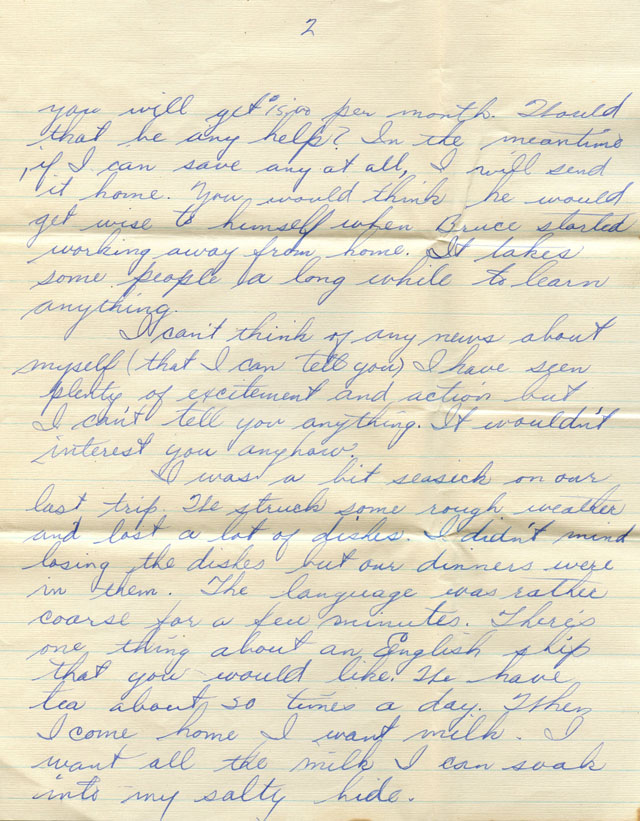 2
you will get $15.00 per month. Would
that be any help? In the meantime
, if I can save any at all, I will send
it home. You would think he would
get wise to himself when Bruce started
working away from home. It takes
some people a long while to learn
anything.
I can't think of any news about
myself (that I can tell you) I have seen
plenty of excitement and action but
I can't tell you anything. It wouldn't
interest you anyhow.
I was a bit seasick on our
last trip. We struck some rough weather
and lost a lot of dishes. I didn't mind
losing the dishes but our dinners were
in them. The language was rather
coarse for a few minutes. There's
one thing about an English ship
that you would like. We have
tea about 20 times a day. When
I come home I want milk. I
want all the milk I can soak
into my salty hide.